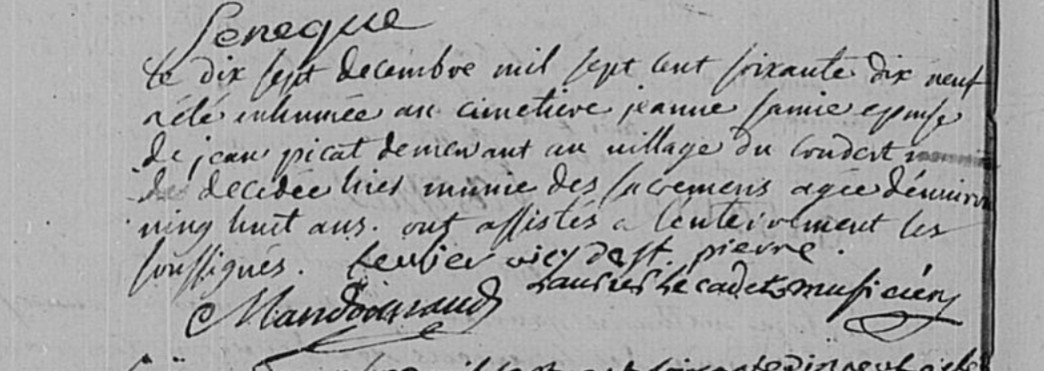 Seneque
Le dix sept decembre mil sept cent soixante dix neuf
a été inhumée au cimetiere jeanne Samie epouse
de jean picat demeurant au village du Coudert
decedée hier munie des sacremens agée d'environ
ving huit ans. ont assistés a lenterrement les
soussignés. vic de st. pierre.
Le cadet musicien